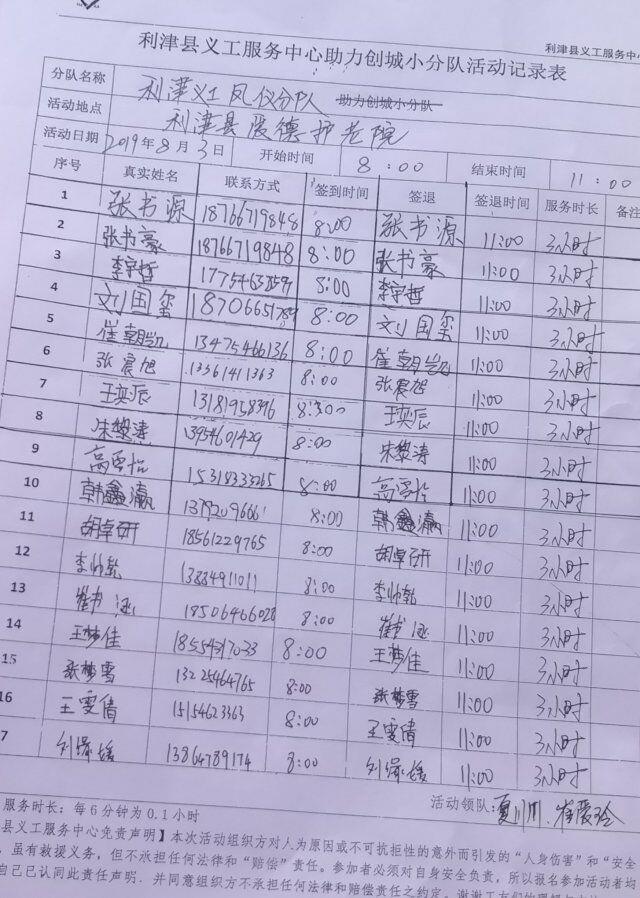 利津县义工服务中
利津县义工服务中心助力创城小分队活动记录表
分队名称 利津义工凤仪分队 助力创城小分队
活动地点 利津县爱德护老院
活动日期 2019年8月3日 开始时间 8:00 结束时间 11:00
序号 真实姓名 联系方式 签到时间 签退 签退时间 服务时长 备注
1 张书源 18766719848 8:00 张书源 11:00 3小时
2 张书豪 18766719848 8:00 张书豪 11:00 3小时
3 李宇哲 17754638597 8:00 李宇哲 11:00 3小时
4 刘国玺 18706651789 8:00 刘国玺 11:00 3小时
5 崔朝凯 13475466136 8:00 崔朝凯 11:00 3小时
6 张宸旭 13561411363 8:00 张宸旭 11:00 3小时
7 王奕辰 13181958396 8:00 王奕辰 11:00 3小时
8 朱黎涛 13954601429 8:00 朱黎涛 11:00 3小时
9 高雪怡 15318333265 8:00 高雪怡 11:00 3小时
10 韩鑫瀛 1379209666 8:00 韩鑫瀛 11:00 3小时
11 胡卓研 18561229765 8:00 胡卓研 11:00 3小时
12 李帅乾 13884911011 8:00 李帅乾 11:00 3小时
13 崔书涵 18506466028 8:00 崔书涵 11:00 3小时
14 王梦佳 8:00 王梦佳 11:00 3小时
15 张梦雪 13225464765 8:00 张梦雪 11:00 3小时
16 王雯倩 15154623363 8:00 王雯倩 11:00 3小时
7 刘缘媛 13864789174 8:00 刘缘媛 11:00 3小时
服务时长：每6分钟为0.1小时 活动领队：
县义工服务中心免责声明】本次活动组织方对人为原因或不可抗拒性的意外而引发的“人身伤害”和“安全
，虽有救援义务，但不承担任何法律和“赔偿”责任。参加者必须对自身安全负责，所以报名参加活动者均
自己已认同此责任声明．并同意组织方不承担任何法律和赔偿责任之约定．谢谢